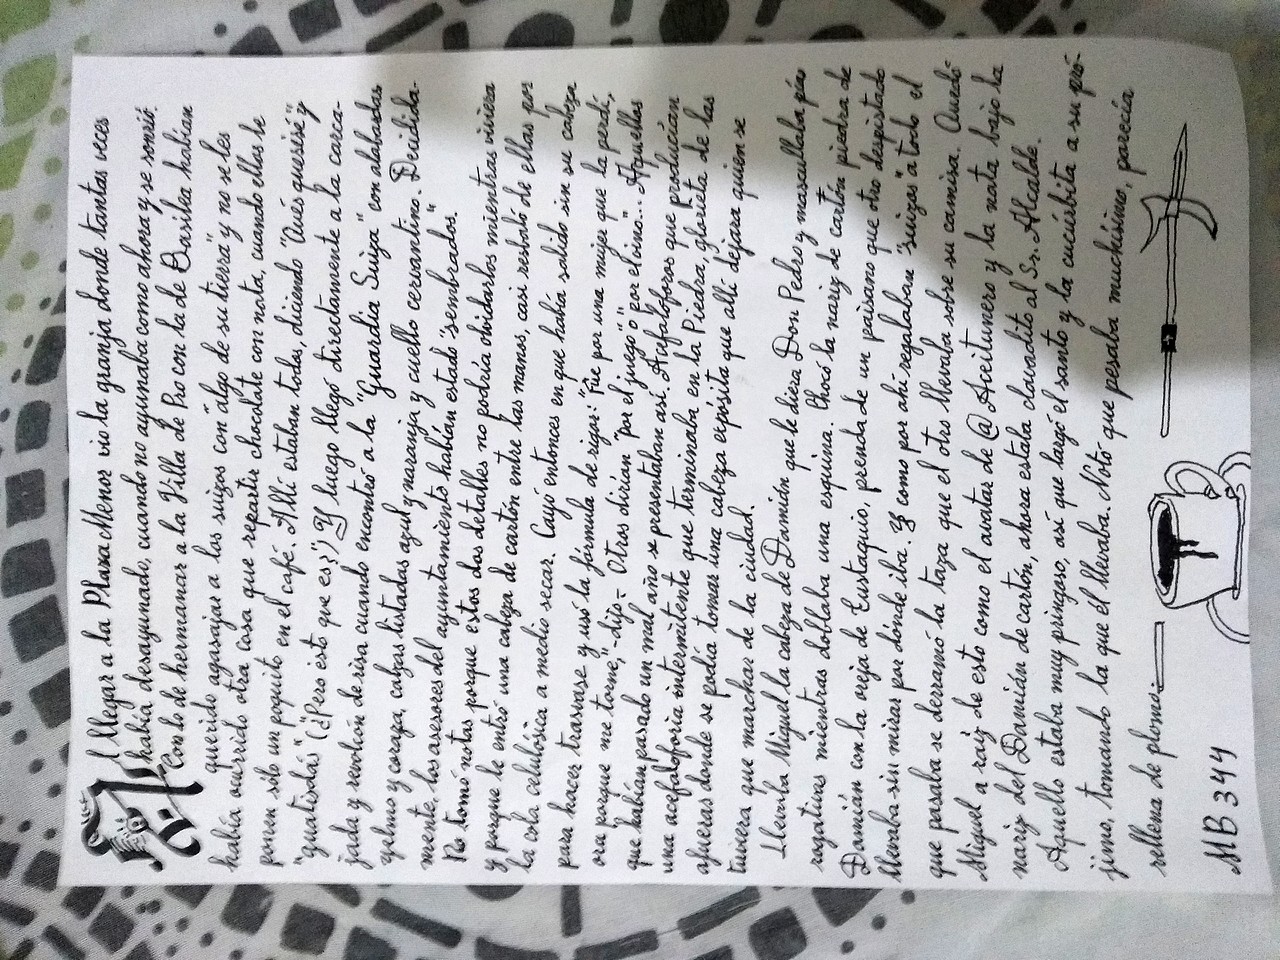 Al llegar a la Plaza Menor vio la granja donde tantas veces
había desayunado, cuando no ayunaba como ahora y se sonrió.
Con lo de hermanar a la Villa de Pro con la de Basilea habían
querido agasajar a los suizos con "algo de su tierra" y no se les
había ocurrido otra cosa que repartir chocolate con nata, cuando ellos le
ponen sólo un poquito en el café. Allí estaban todos, diciendo "Qués quersisé" y
"guatisdás" (¿"Pero esto que es?") Y luego llegó directamente a la carca-
jada y revolcón de risa cuando encontró a la "Guardia Suiza" con alabardas
yelmo y coraza, calzas listadas azul y naranja y cuello cervantino. Decidida-
mente, los asesores del ayuntamiento habían estado "sembrados."
No tomó notas porque estos dos detalles no podría olvidarlos mientras viviera
y porque le entró una cabeza de cartón entre las manos, casi resbaló de ellas por
la cola celulósica a medio secar. Cayó entonces en que había salido sin su cabeza
para hacer trasvase y usó la fórmula de rigor: "Fue por una mujer que la perdí,
ora porque me torné," -dijo- Otros dirían "por el juego" o "por el vino"... Aquellos
que habían pasado un mal año se presentaban así, Acefalóforos que producían
una acefaloforia intermitente que terminaba en la Piedra, glorieta de las
afueras donde se podía tomar una cabeza expósita que allí dejara quien se
tuviera que marchar de la ciudad.
Llevaba Miguel la cabeza de Damián que le diera Don Pedro y mascullaba pías
rogativas mientras doblaba una esquina. Chocó la nariz de cartón piedra de
Damián con la oreja de Eustaquio, prenda de un paisano que otro despistado
llevaba sin mirar por dónde iba. Y como por ahí regalaban "suizos" a todo el
que pasaba se derramó la taza que el otro llevaba sobre su camisa. Quedó
Miguel a raíz de esto como el avatar de @Aceitunero y la nata bajo la
nariz del Damián de cartón, ahora estaba clavadito al Sr. Alcalde.
Aquello estaba muy pringoso, así que largó el santo y la cucúrbita a su pró-
jimo, tomando la que él llevaba. Notó que pesaba muchísimo, parecía
rellena de plomo.
MB 344